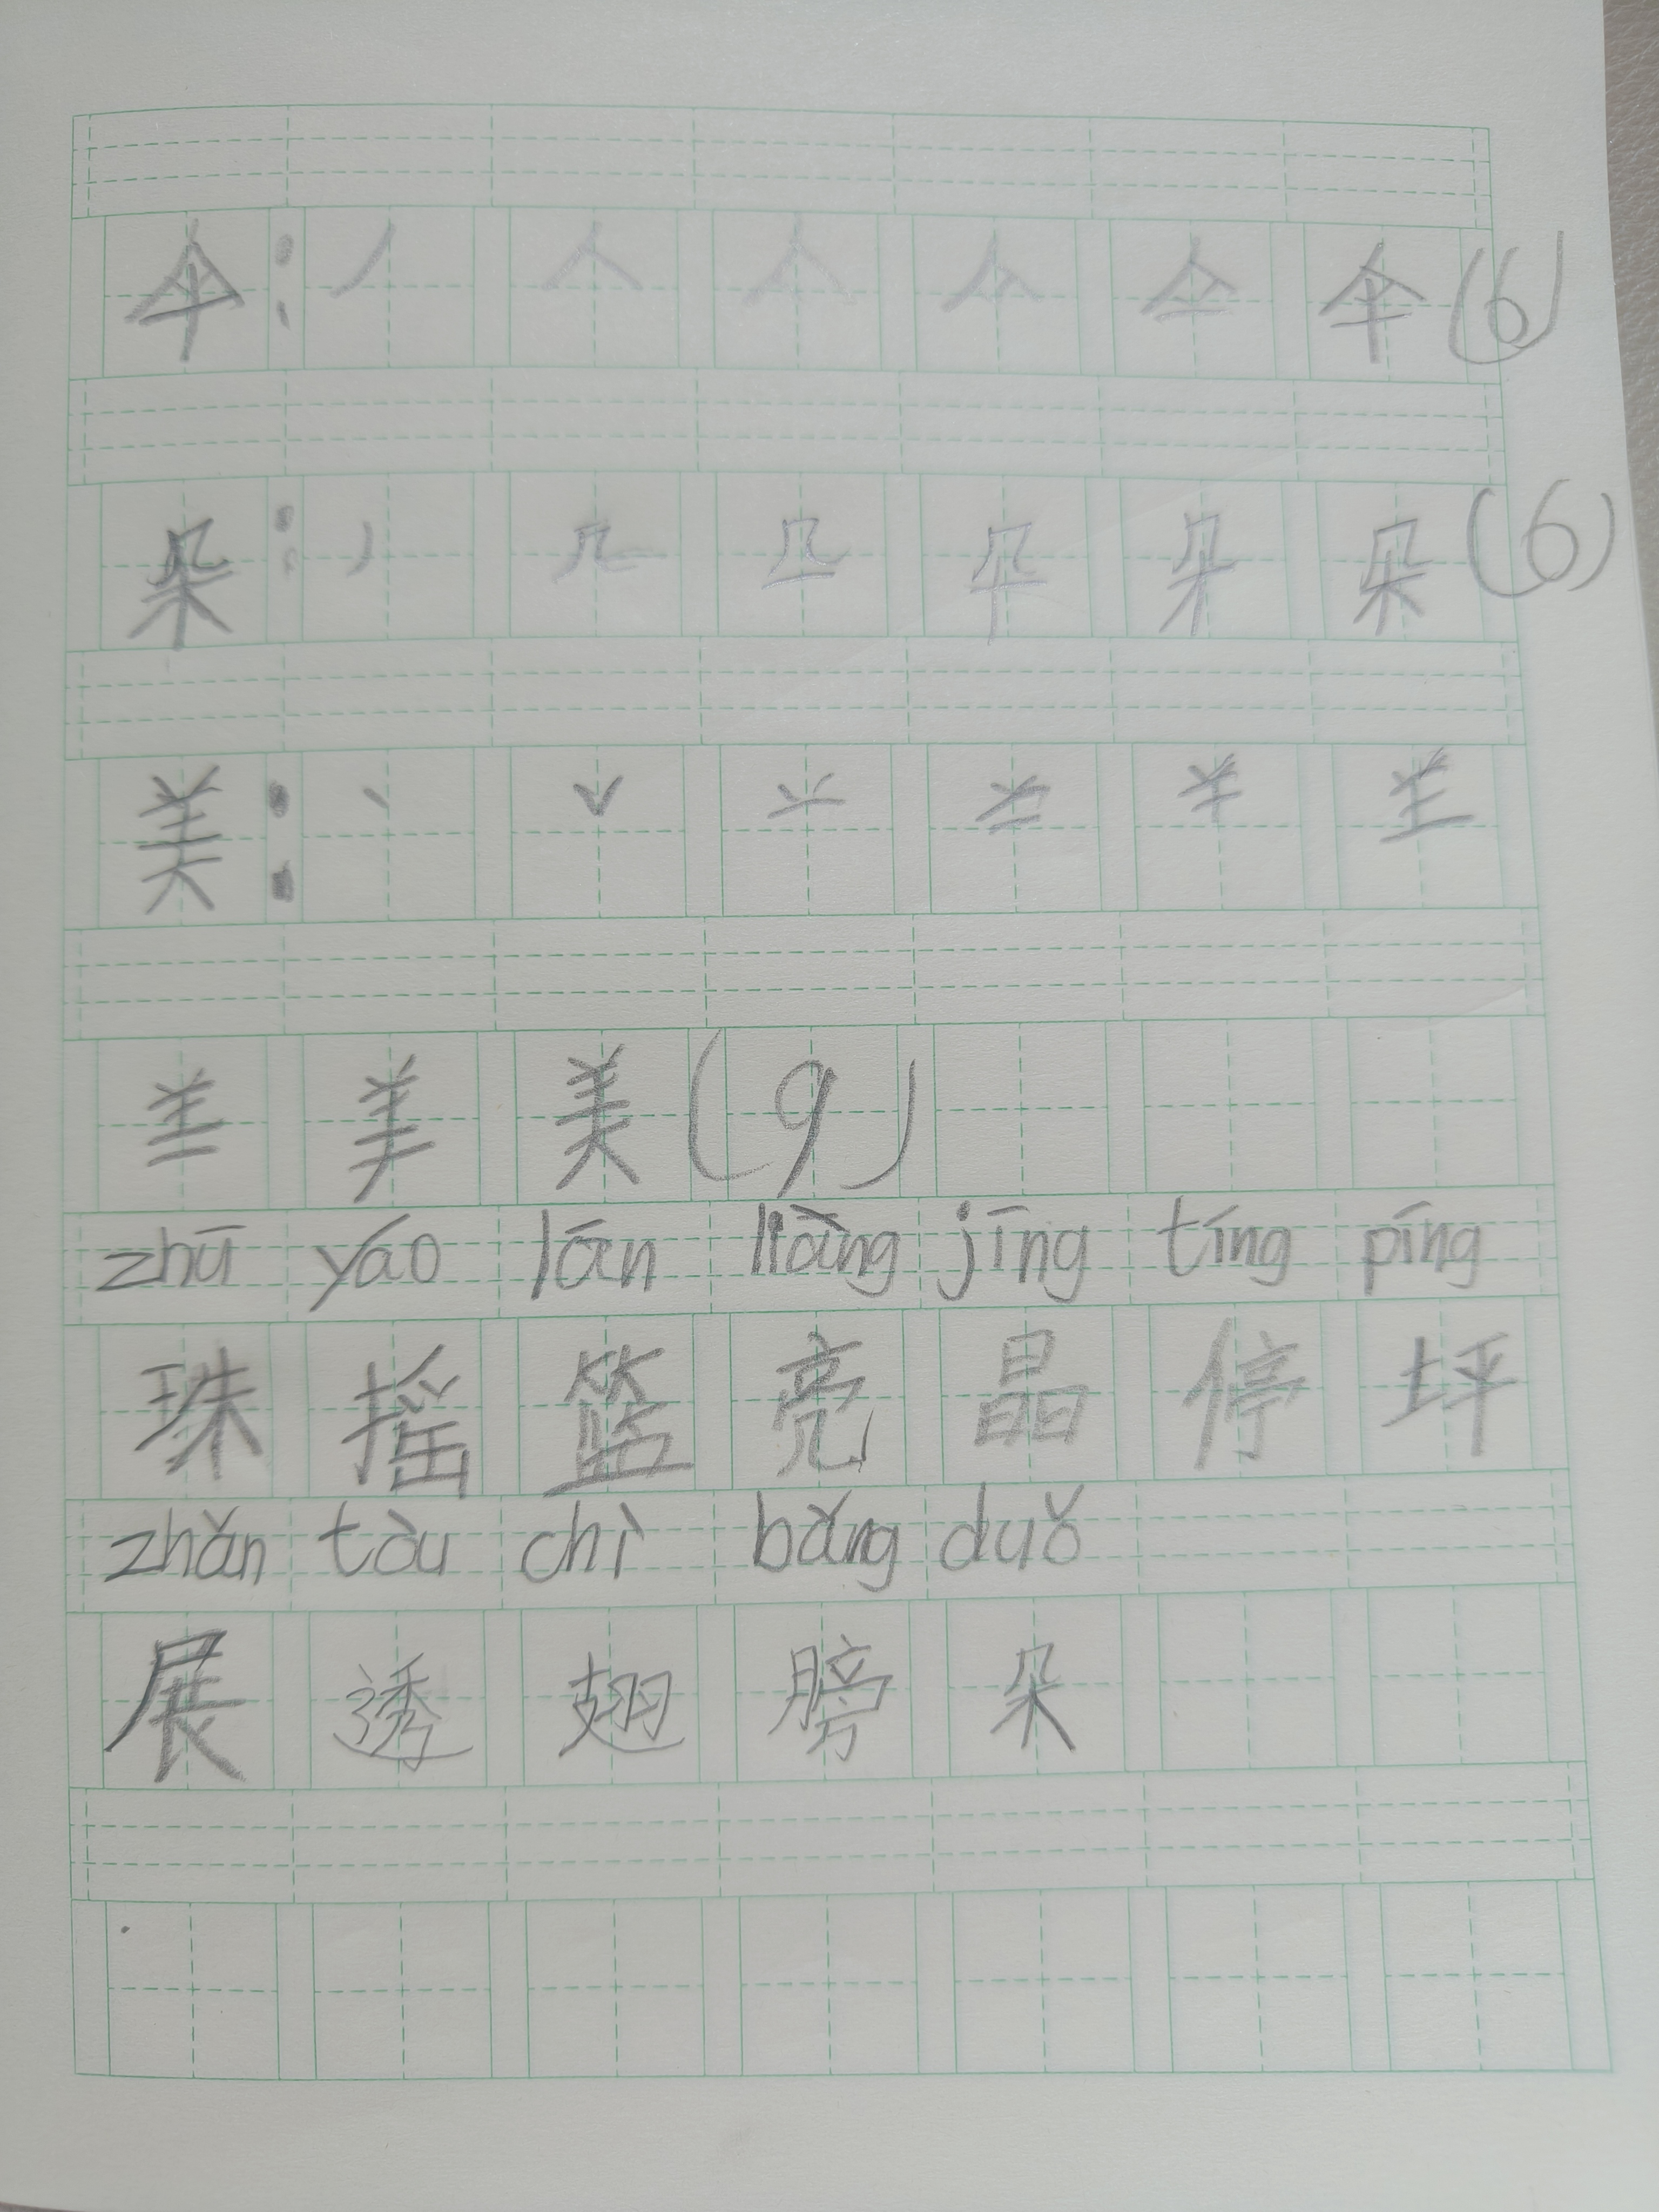 伞：丿 人 𠆢 亽 仐 伞 (6)
朵：丿 几 朵 (6)
美：丶 丷 䒑 𦍌
美 (9)
zhū yáo lān liàng jīng tíng píng
珠 摇 篮 亮 晶 停 坪
zhǎn tòu chì bǎng duǒ
展 透 翅 膀 朵